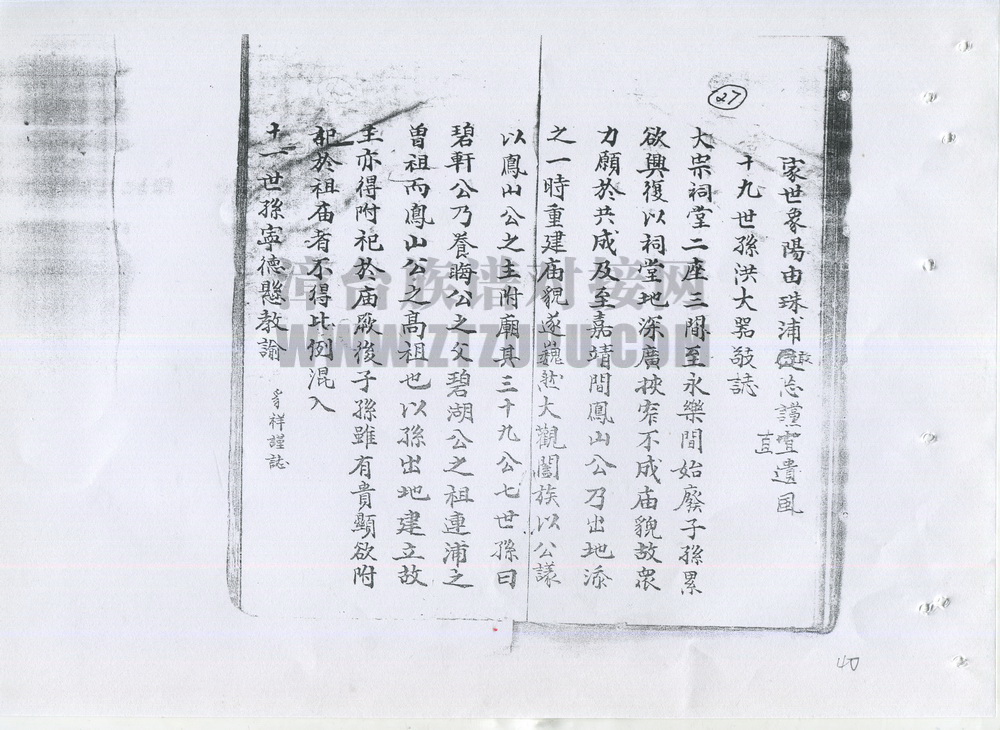 27
家世象陽由珠浦志謹壹遺風
直
十九世孫洪大器敬誌
大宗祠堂二座三間至永樂間始廢子孫累
欲興復以祠堂地深廣挾窄不成庙貌故衆
力願於共成及至嘉靖間鳳山公乃出地添
之一時重建庙貌遂巍然大觀闔族以公議
以鳳山公之主附廟其三十九公七世孫曰
碧軒公乃養晦公之父碧湖公之祖連浦之
曾祖而鳳山公之高祖也以孫出地建立故
主亦得附祀於庙厥後子孫雖有貴顯欲附
祀於祖庙者不得比例混入
十一世孫寧德懸教諭 祥謹誌
漳台族谱对接网
WWW.ZTZUPU.COM
40